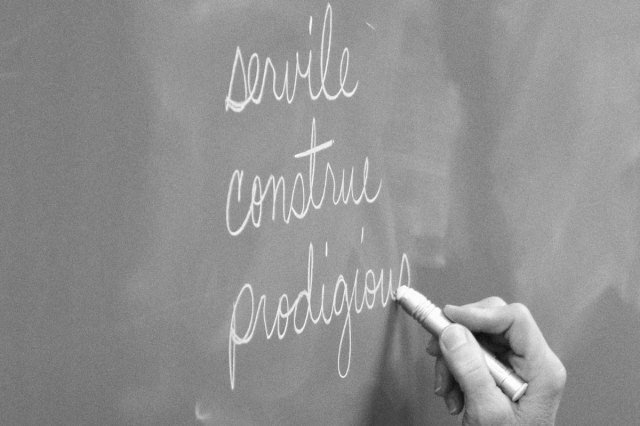 servile
construe
prodigious